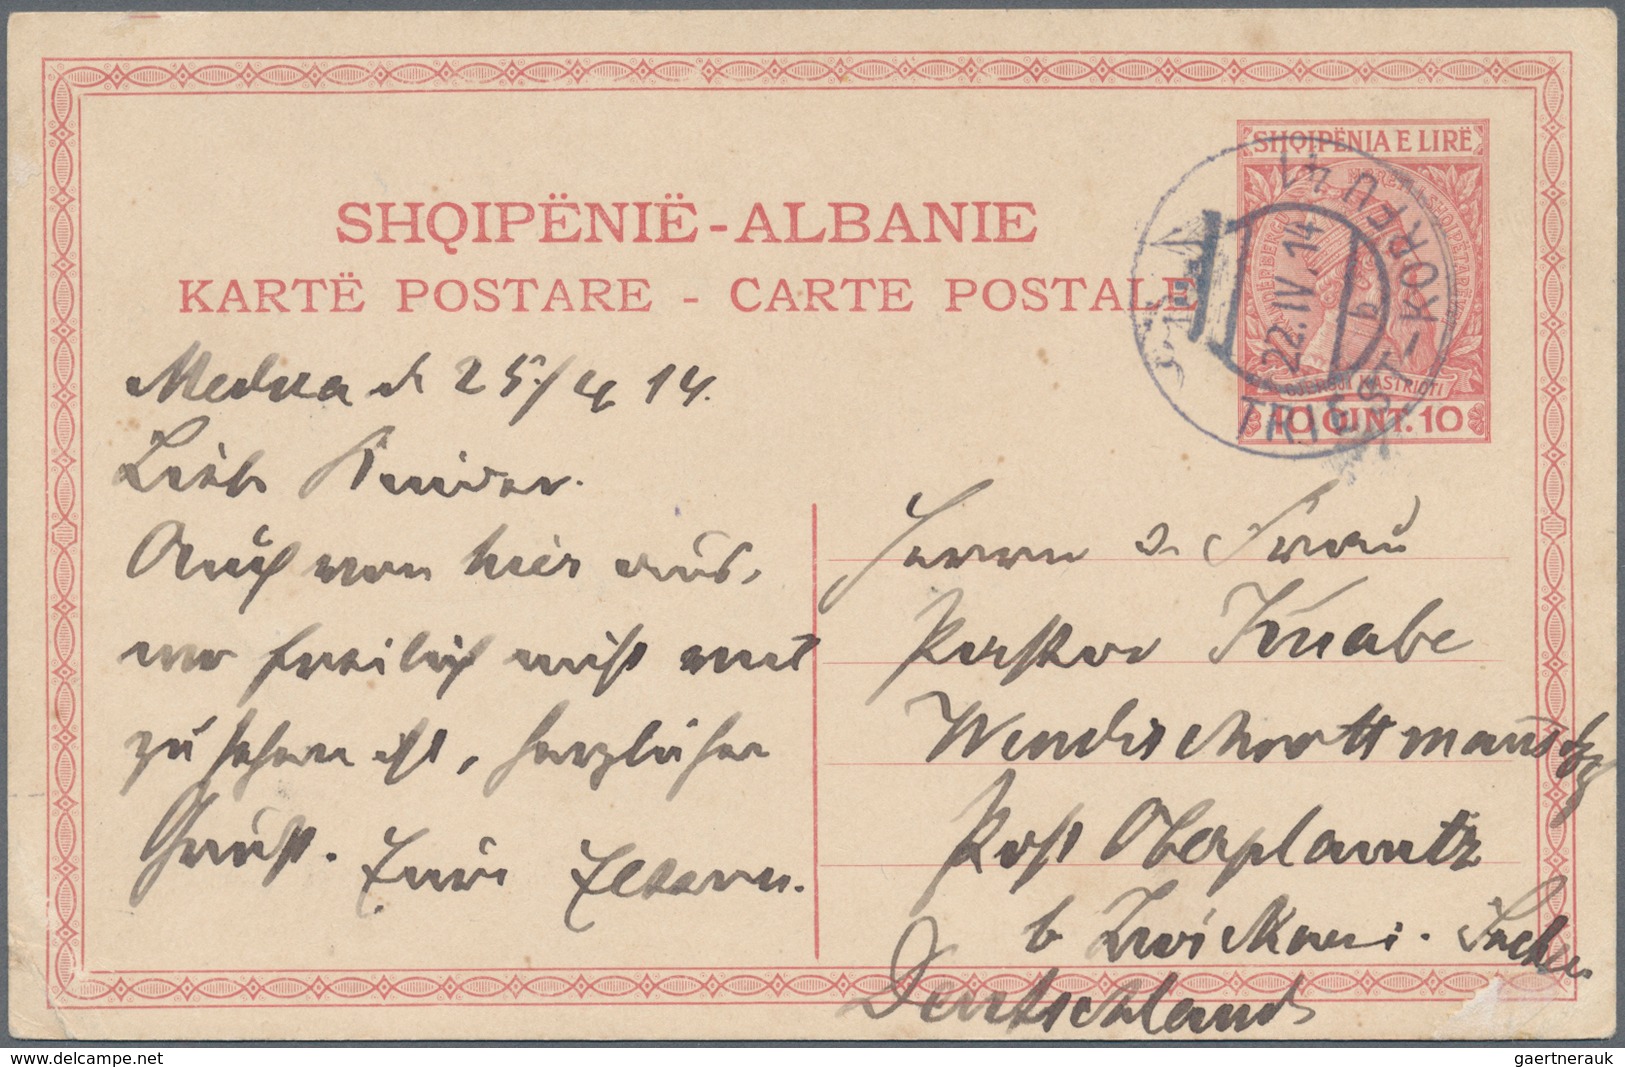 SHQIPËNIË-ALBANIE
KARTË POSTARE - CARTE POSTALE
SHQIPËNIA E LIRË
GJERGJ KASTRIOTI
10 QINT. 10
TRIEST-KORFU 47
22.IV.14
b
Medua d 25/4 14.
Liebe Kinder.
Auch von hier aus,
wo freilich nicht viel
zu sehen ist, herzlichen
Gruß. Eure Eltern.
Herrn u. Frau
Pastor Knabe
Wendischrottmansdf
Post Oberplanitz
b Zwickau i. Sachsen
Deutschland
www.delcampe.net
gaertnerauk